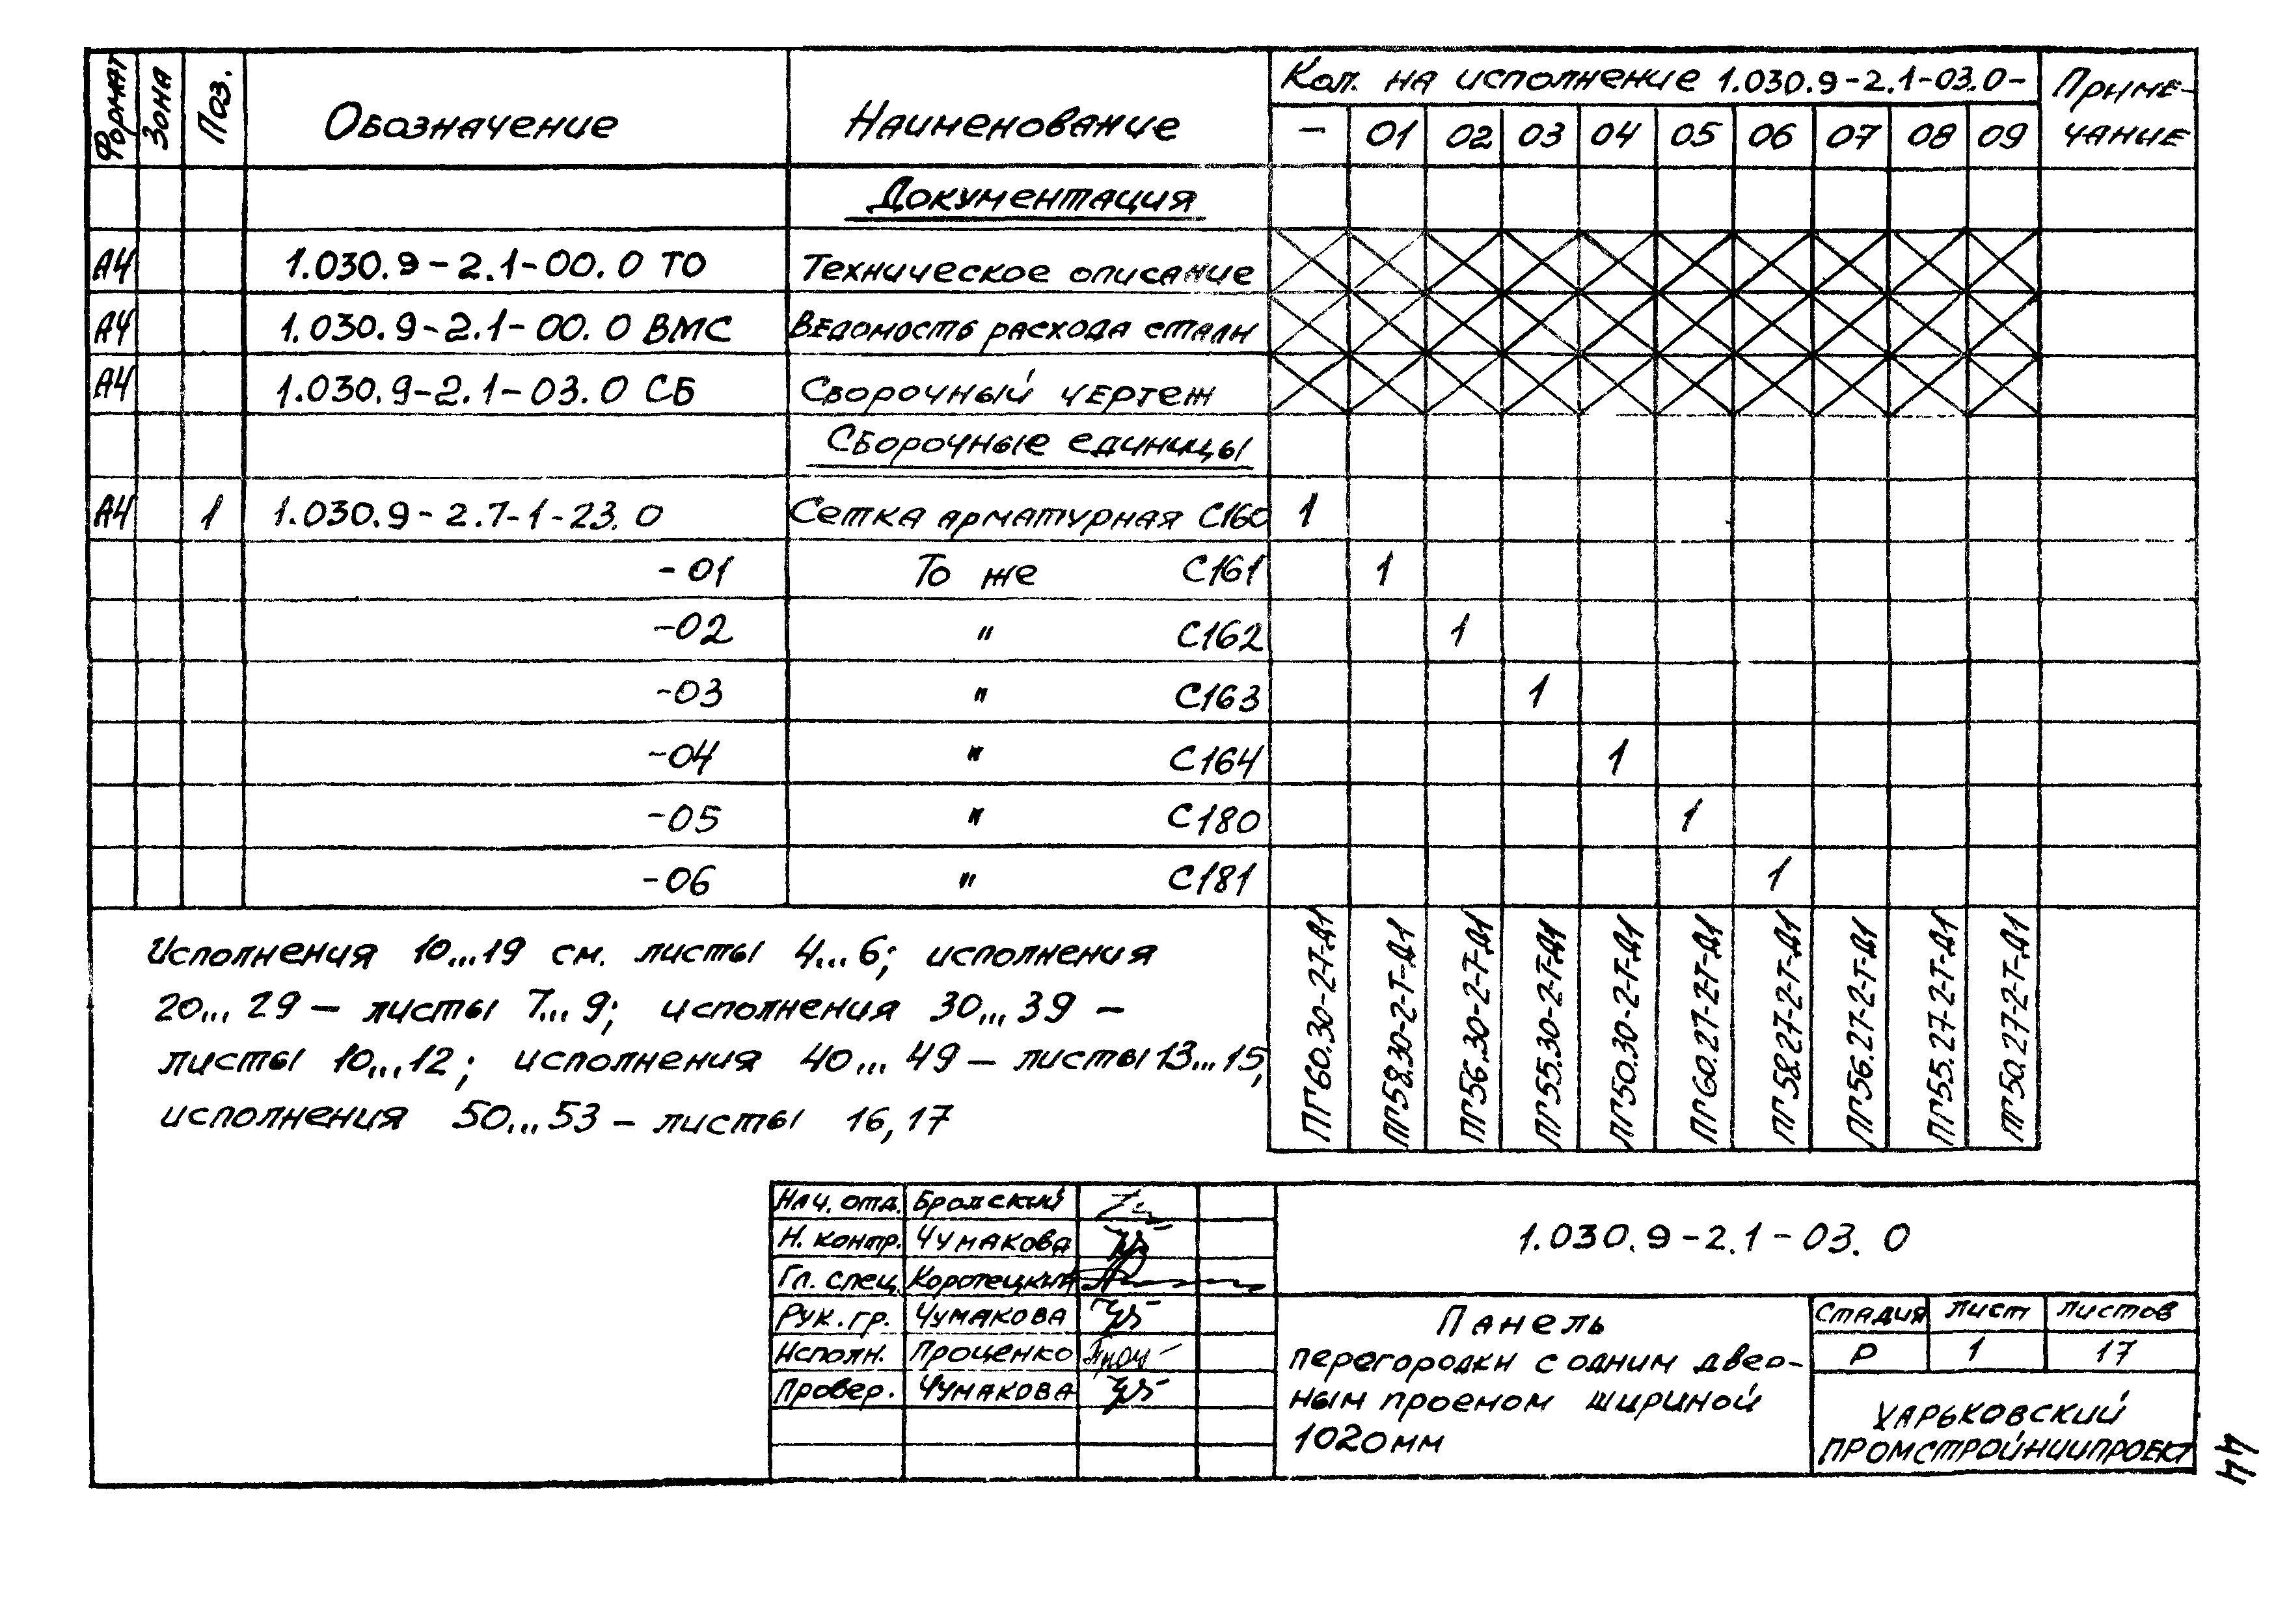 Формат Зона Поз. Обозначение Наименование Кол. на исполнение 1.030.9-2.1-03.0- Приме-
чание
- 01 02 03 04 05 06 07 08 09
Документация
А4 1.030.9-2.1-00.0 ТО Техническое описание
А4 1.030.9-2.1-00.0 ВМС Ведомость расхода стали
А4 1.030.9-2.1-03.0 СБ Сворочный чертеж
Сборочные единицы
А4 1 1.030.9-2.7-1-23.0 Сетка арматурная С160 1
-01 То же С161 1
-02 " С162 1
-03 " С163 1
-04 " С164 1
-05 " С180 1
-06 " С181 1
Исполнения 10...19 см. листы 4...6; исполнения
20...29 - листы 7...9; исполнения 30...39 -
листы 10...12; исполнения 40...49 - листы 13...15,
исполнения 50...53 - листы 16,17
ПГ60.30-2-Т-Д1
ПГ58.30-2-Т-Д1
ПГ56.30-2-Т-Д1
ПГ55.30-2-Т-Д1
ПГ50.30-2-Т-Д1
ПГ60.27-2-Т-Д1
ПГ58.27-2-Т-Д1
ПГ56.27-2-Т-Д1
ПГ55.27-2-Т-Д1
ПГ50.27-2-Т-Д1
Нач. отд. Бродский
Н. контр. Чумакова
Гл. спец. Коротецкий
Рук. гр. Чумакова
Исполн. Проценко
Провер. Чумакова
1.030.9-2.1-03.0
Панель
перегородки с одним двер-
ным проемом шириной
1020мм
Стадия Лист Листов
Р 1 17
Харьковский
ПромстройНИИпроект
44